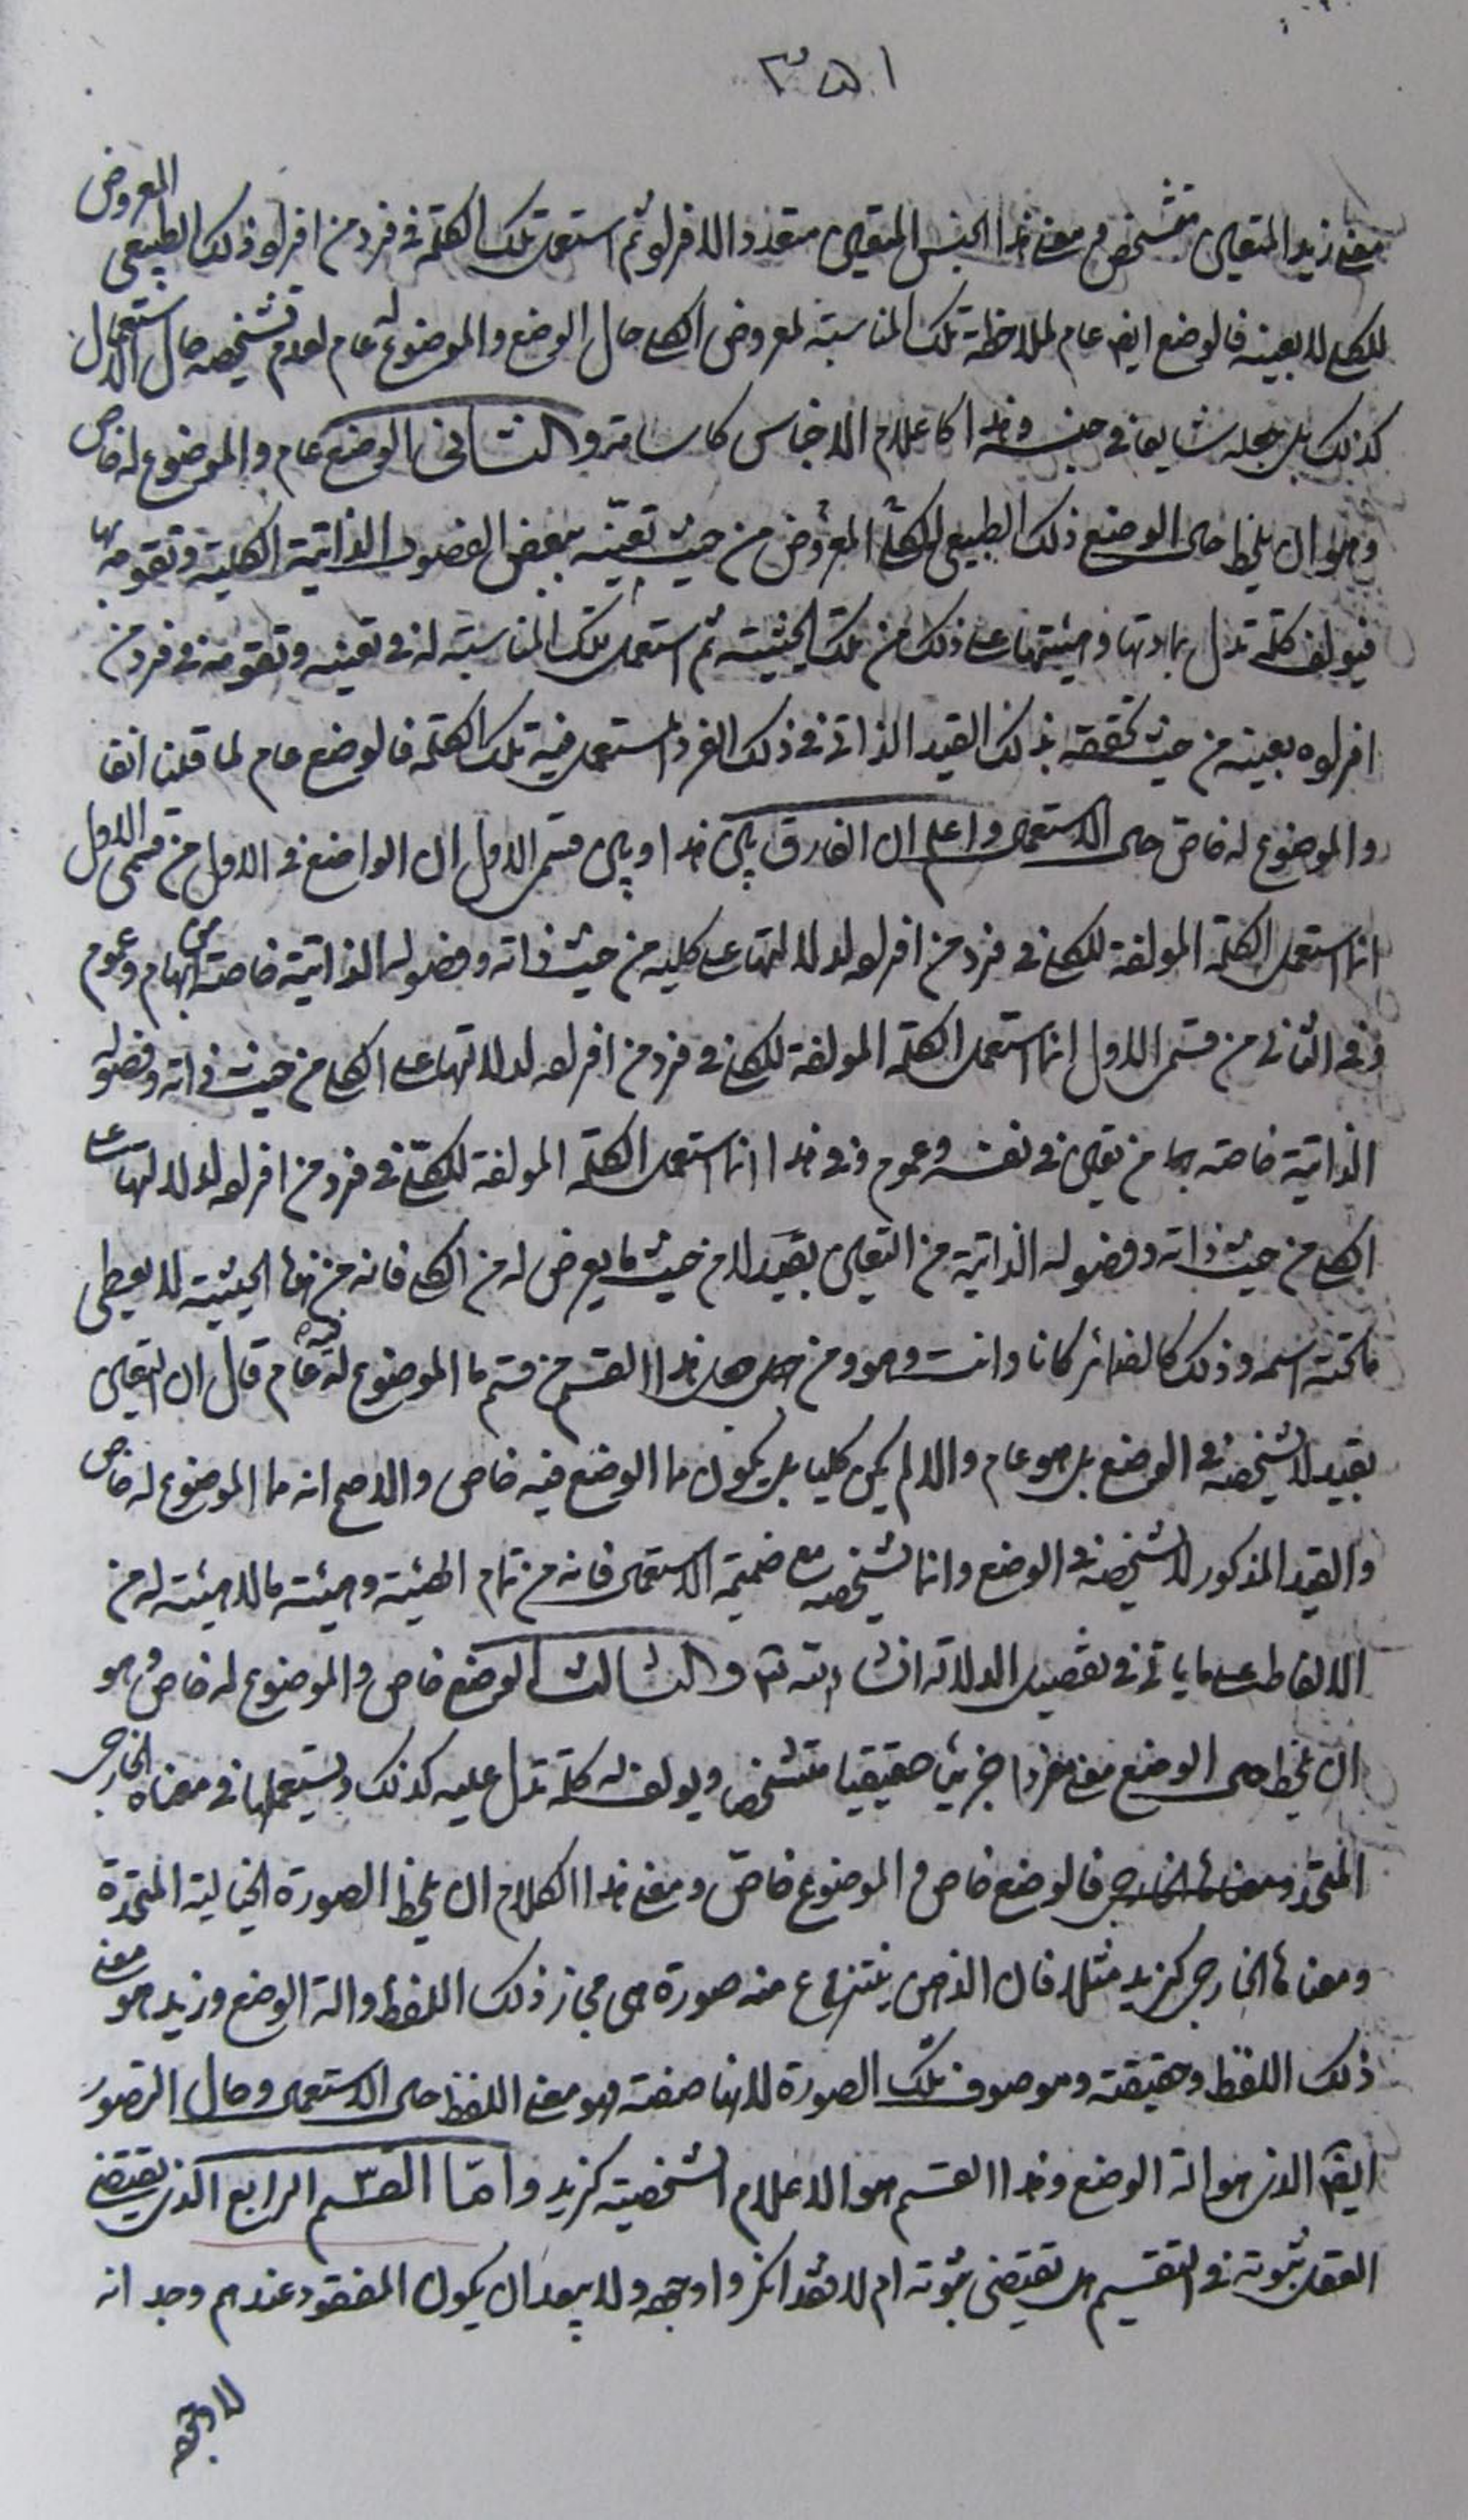 ٣٥١
معنى زيد المتعين متشخص و معنى هذا الجنس المتعين متعدد الافراد ثم استعمل تلك الكلمة في فرد من افراد ذلك الطبيعي المعروض
للكلي لا بعينه فالوضع ايضا عام لملاحظة تلك المناسبة لمعروض الكلي حال الوضع والموضوع له عام لعدم تشخيصه حال الاستعمال
كذلك بل يجعله شايعا في جنسه وهذا كاعلام الاجناس كاسامة والثاني الوضع عام والموضوع له خاص
وهو ان يلحظ حال الوضع ذلك الطبيعي للكلي المعروض من حيث تعينه ببعض الفصول الذاتية الكلية وتقومه بها
فيولف كلمة تدل بمادتها وهيئتها على ذلك من تلك الحيثية ثم استعمل تلك المناسبة له في تعينه وتقومه في فرد من
افراده بعينه من حيث تحققه بذلك القيد الذاتي في ذلك الفرد المستعمل فيه تلك الكلمة فالوضع عام لما قلنا انفا
والموضوع له خاص حال الاستعمال واعلم ان الفارق بين هذا وبين قسمى الاول ان الواضع في الاول من قسمى الاول
انما استعمل الكلمة المولفة للكلي في فرد من افراده لدلالتها على كليه من حيث ذاته وفصوله الذاتية خاصة من ابهام وعموم
وفي الثاني من قسمى الاول انما استعمل الكلمة المولفة للكلي في فرد من افراده لدلالتها على الكلي من حيث ذاته وفصوله
الذاتية خاصة بما من تعين في نفسه وعموم وفي هذا انما استعمل الكلمة المولفة للكلي في فرد من افراده لدلالتها على
الكلي من حيث ذاته وفصوله الذاتية من التعين بقيد لا من حيث ما يعرض له من الكلي فانه من هذه الحيثية لا يعطى
ما تحته اسمه وذلك كالضمائر كانا وانت وهو ومن جعل هذا القسم من قسم ما الموضوع له فيه عام قال ان التعين
بقيد لا يشخصه في الوضع بل هو عام والا لم يكن كليا بل يكون مما الوضع فيه خاص والاصح انه مما الموضوع له خاص
والقيد المذكور لا يشخصه في الوضع وانما يشخصه مع ضميمة الاستعمال فانه من تمام الهيئة وهيئة ما لا هيئة له من
الالفاظ على ما ياتي في تفصيل الدلالة ان شاء الله تعالى والثالث الوضع خاص والموضوع له خاص وهو
ان يلحظ حال الوضع معنى مفردا جزئيا حقيقيا متشخصا ويولف له كلمة تدل عليه كذلك ويستعملها في معناه الخارجي
المتحد ومعناه الخارجي فالوضع خاص والموضوع خاص ومعنى هذا الكلام ان يلحظ الصورة الخيالية المتحدة
ومعناها الخارجي كزيد مثلا فان الذهن ينتزع منه صورة هي مجاز ذلك اللفظ والة الوضع وزيد هو معنى
ذلك اللفظ وحقيقته وموصوف تلك الصورة لانها صفته فهو معنى اللفظ حال الاستعمال وحال التصور
ايضا الذي هو الة الوضع وهذا القسم هو الاعلام الشخصية كزيد واما القسم الرابع الذي يقتضى
العقل ثبوته في التقسيم هل تقتضى ثبوته ام لا فقد انكروا وجهه ولا يبعد ان يكون المفقود عندهم وجدانه
لا وجه